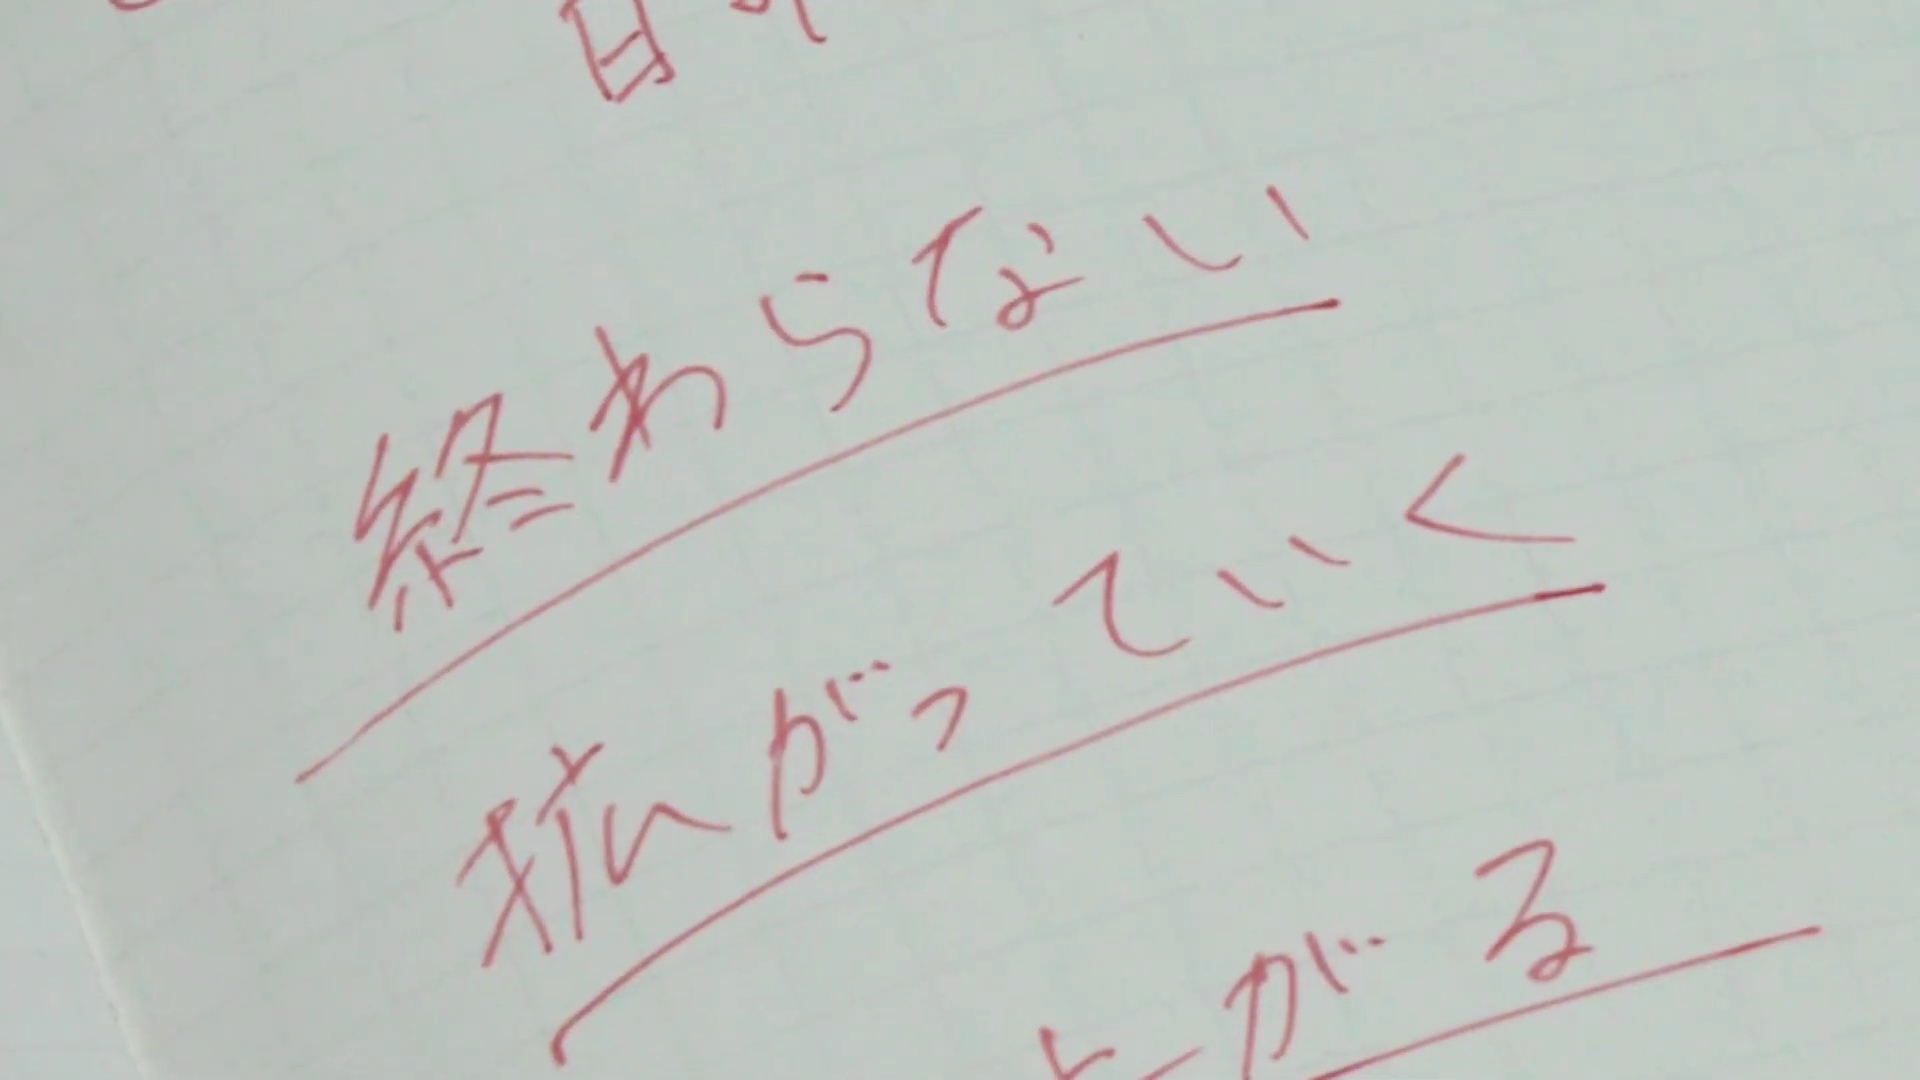 日
終わらない
拡がっていく
がる